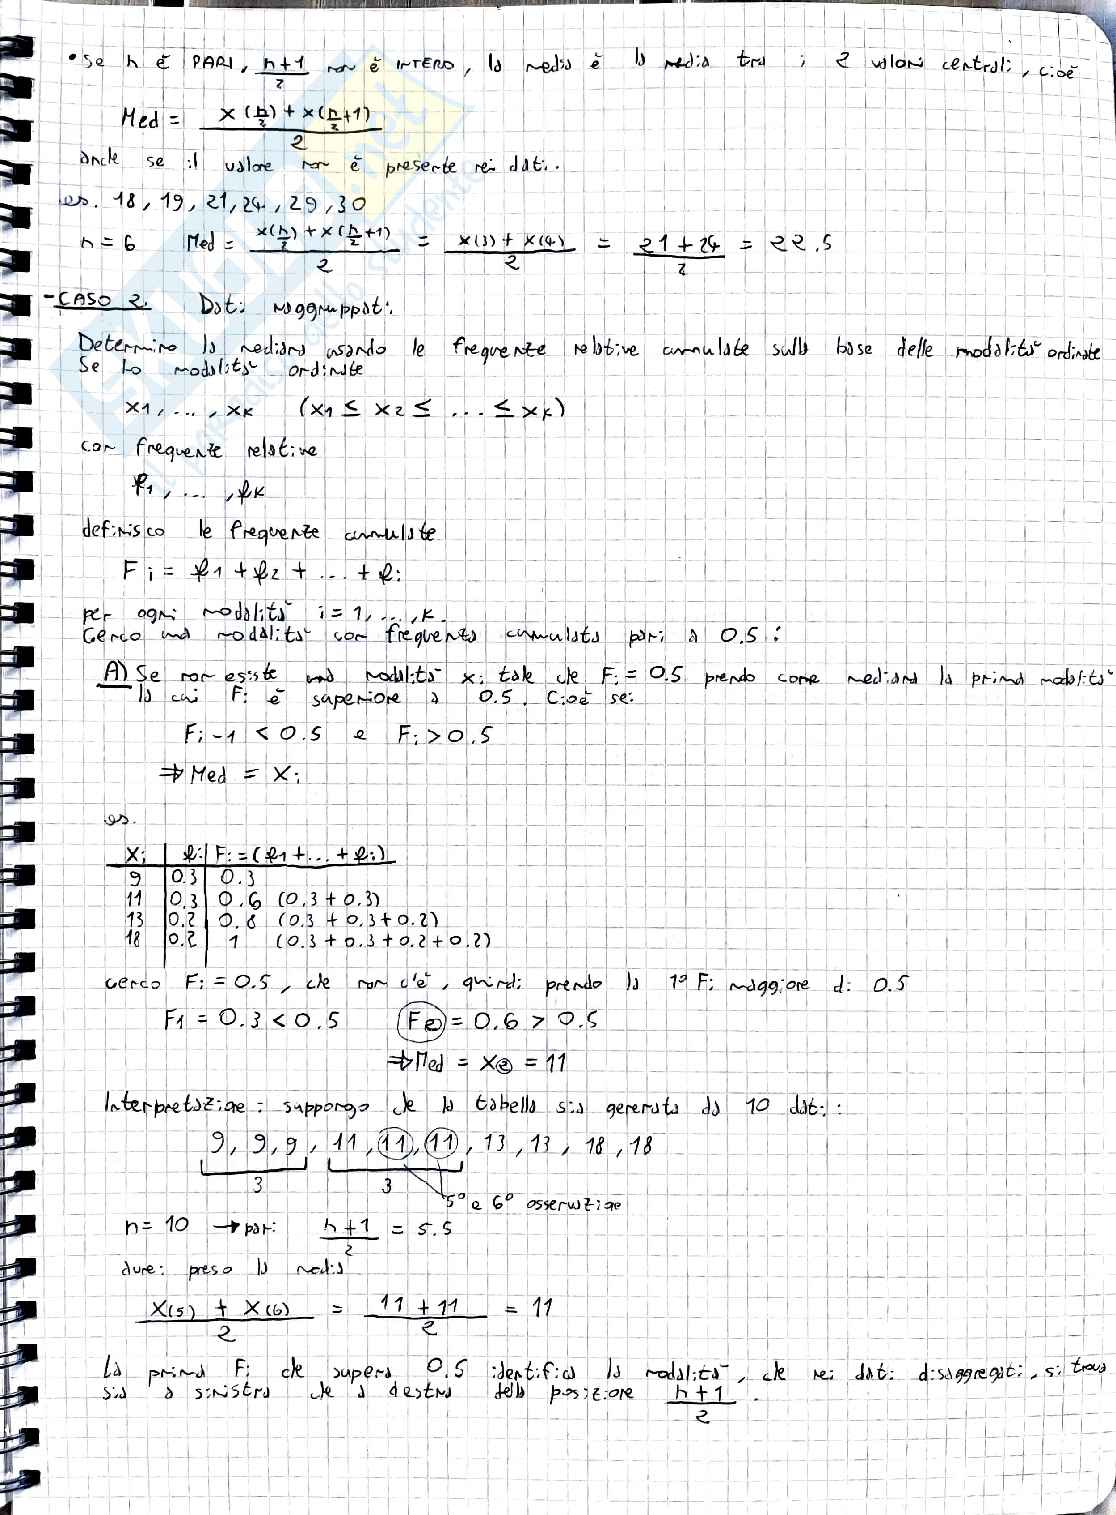 • Se n è PARI, n+1/2 non è INTERO, la media è la media tra i 2 valori centrali, cioè
Med = x(n/2) + x(n/2+1) / 2
anche se il valore non è presente nei dati.
es. 18, 19, 21, 24, 29, 30
n = 6 Med = x(n/2) + x(n/2+1) / 2 = x(3) + x(4) / 2 = 21 + 24 / 2 = 22.5
- CASO 2. Dati raggruppati
Determino la mediana usando le frequenze relative cumulate sulla base delle modalità ordinate
Se ho modalità ordinate
x1, ..., xk (x1 ≤ x2 ≤ ... ≤ xk)
con frequenze relative
f1, ..., fk
definisco le frequenze cumulate
Fi = f1 + f2 + ... + fi
per ogni modalità i = 1, ..., k.
Cerco una modalità con frequenza cumulata pari a 0.5 :
A) Se non esiste una modalità xi tale che Fi = 0.5 prendo come mediana la prima modalità
la cui Fi è superiore a 0.5. Cioè se:
Fi-1 < 0.5 e Fi > 0.5
⇒ Med = xi
es.
xi | fi | Fi = (f1 + ... + fi)
9 | 0.3 | 0.3
11 | 0.3 | 0.6 (0.3 + 0.3)
13 | 0.2 | 0.8 (0.3 + 0.3 + 0.2)
18 | 0.2 | 1 (0.3 + 0.3 + 0.2 + 0.2)
cerco Fi = 0.5, che non c'è, quindi prendo la 1ª Fi maggiore di 0.5
F1 = 0.3 < 0.5 F2 = 0.6 > 0.5
⇒ Med = x2 = 11
Interpretazione : suppongo che la tabella sia generata da 10 dati :
9, 9, 9, 11, 11, 11, 13, 13, 18, 18
3 3 5° e 6° osservazione
n = 10 → pari n+1/2 = 5.5
avrei preso la media
x(5) + x(6) / 2 = 11 + 11 / 2 = 11
La prima Fi che supera 0.5 identifica la modalità, che nei dati disaggregati, si trova
sia a sinistra che a destra della posizione n+1/2.